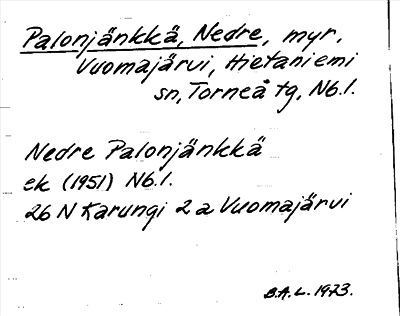 Palonjänkkä, Nedre, myr,
Vuomajärvi, Hietaniemi
sn, Torneå tg, Nb.l.
Nedre Palonjänkkä
ek (1951) Nb.l.
26 N Karungi 2 a Vuomajärvi
B.A.L. 1973.